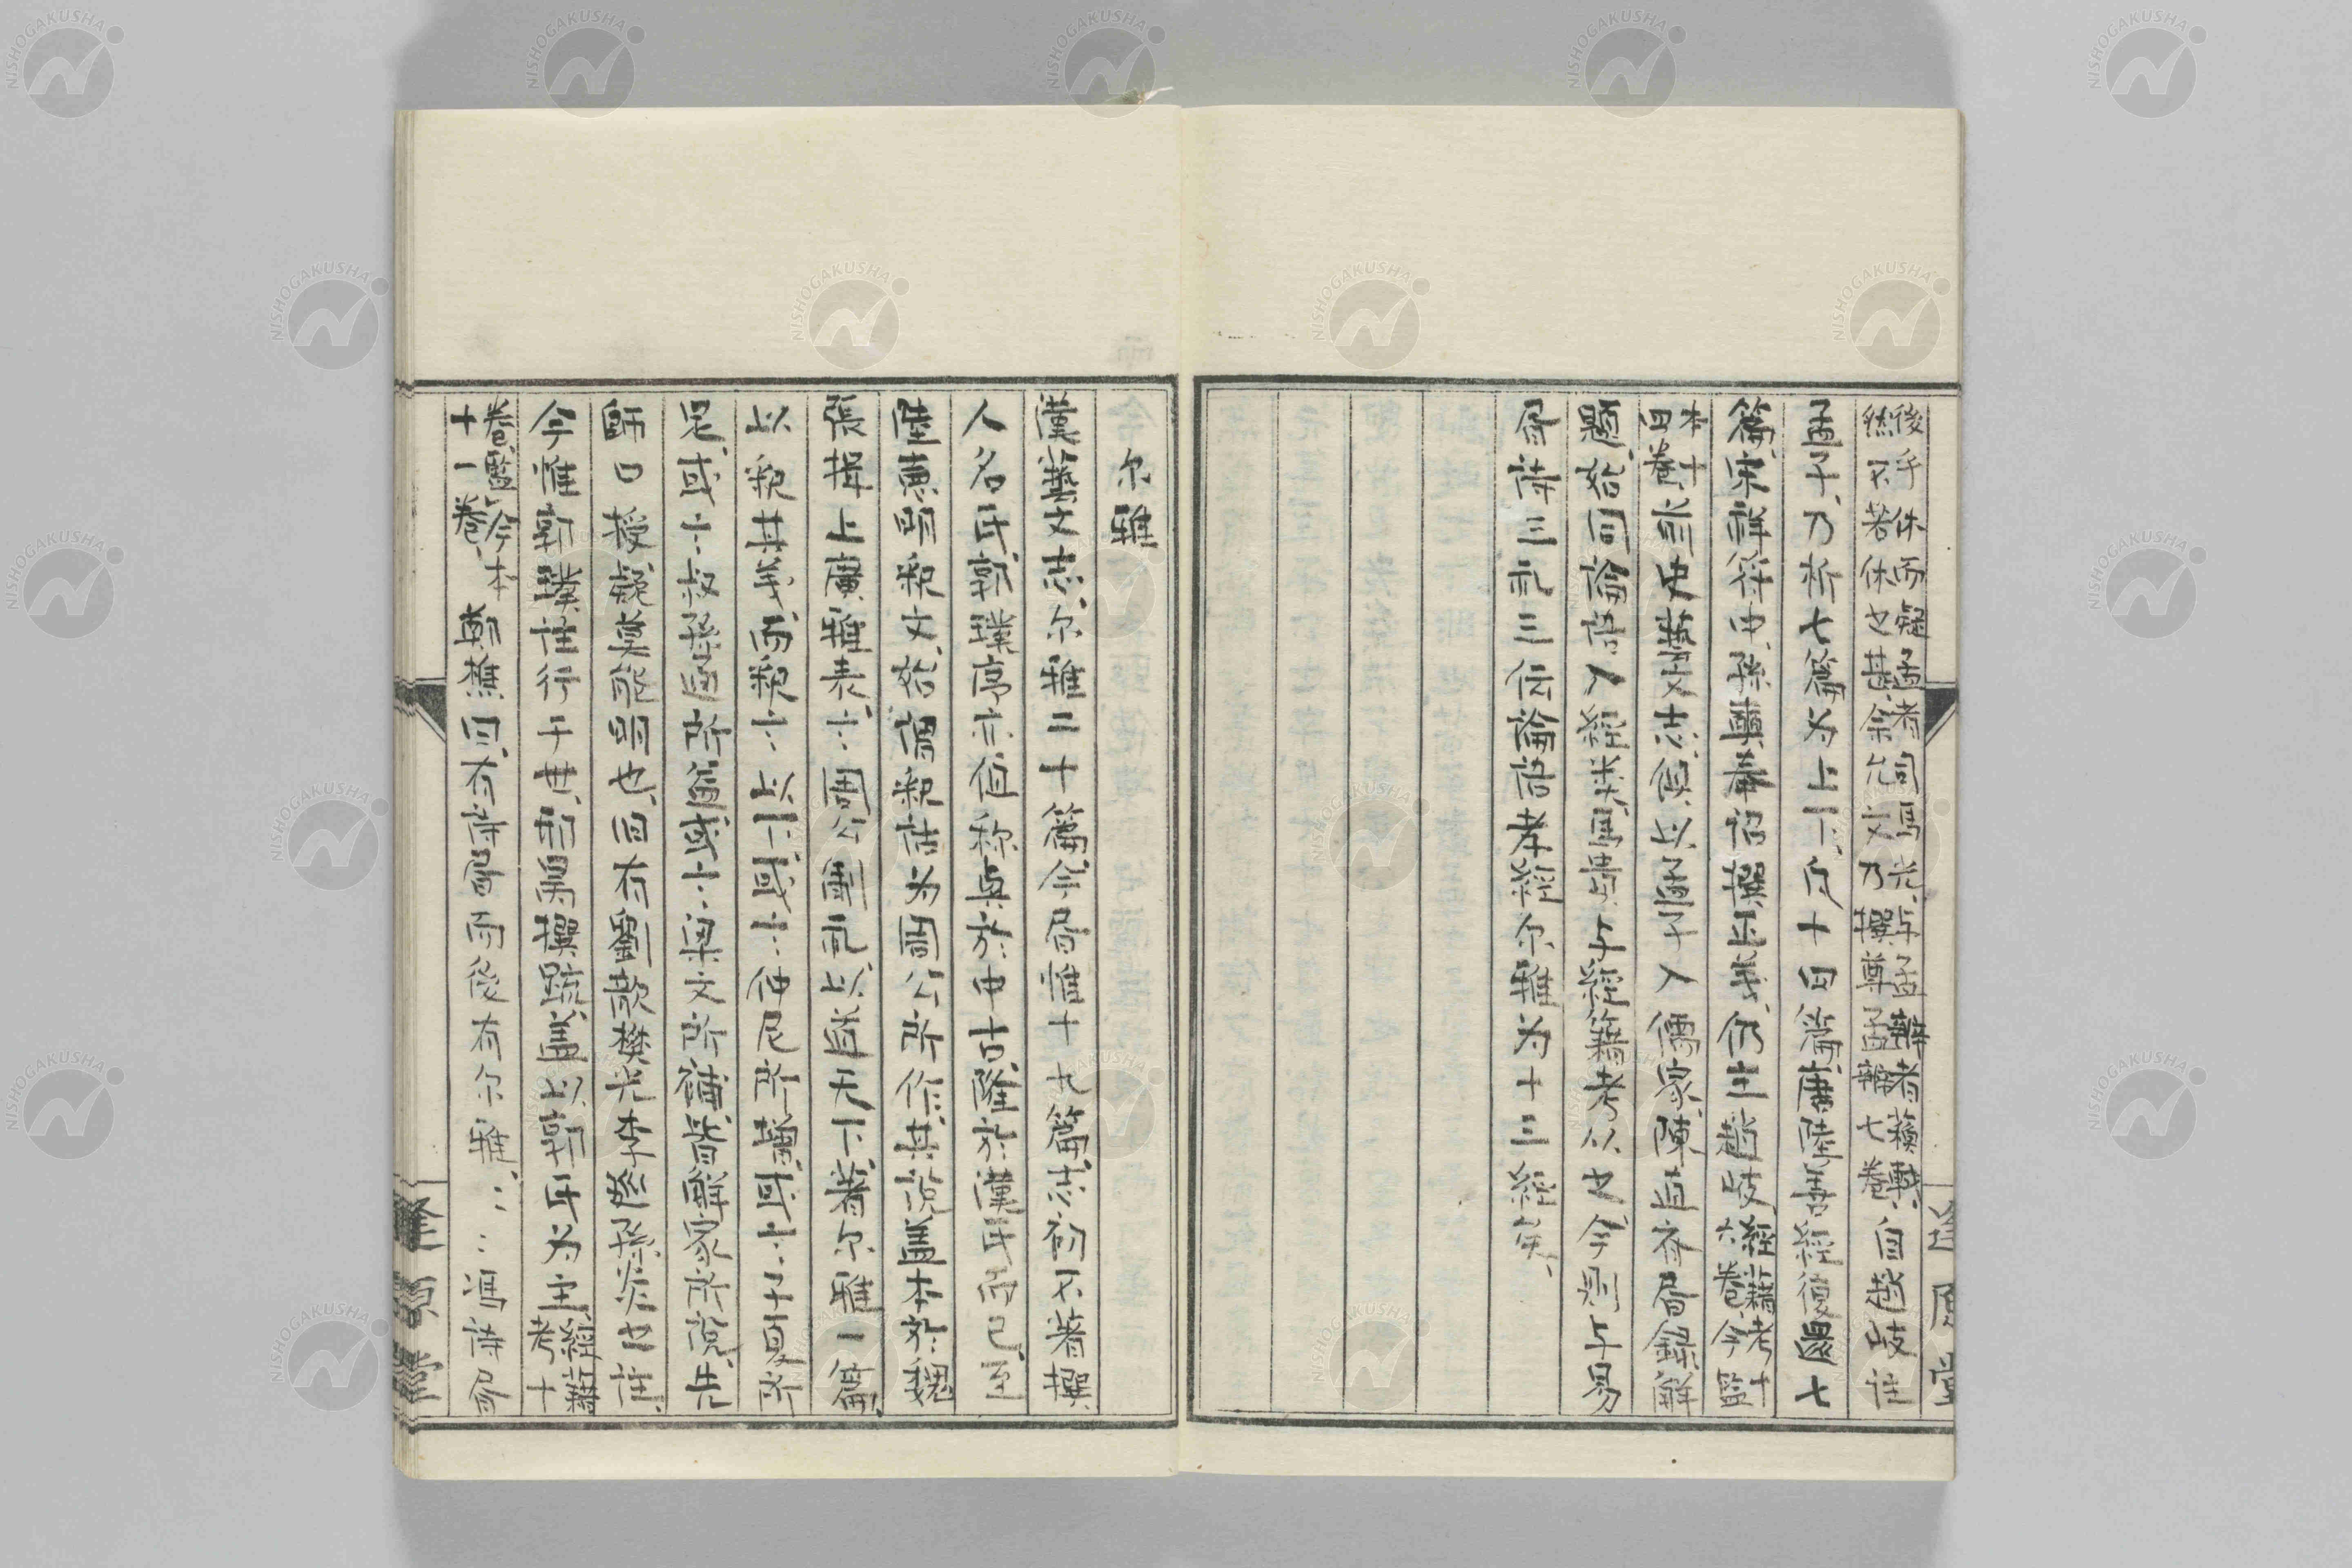 後乎休而疑孟者司馬光、与孟辨者蘓軾、
然不若休之甚、余允文乃撰尊孟辨七卷、自趙岐注
孟子、乃析七篇为上下、凡十四篇、唐陸善經復還七
篇、宋祥符中、孫奭奉詔撰正義、仍主趙岐、經藉考十
六卷、今監
本十
四卷、前史藝文志、俱以孟子入儒家、陳直斉書録解
題、始同論語入經类、馬貴与經籍考从之、今則与易
書詩三礼三伝論語孝經尔雅为十三經矣、
尔雅
漢藝文志、尔雅二十篇、今書惟十九篇、志初不著撰
人名氏、郭璞序亦但称興於中古、隆於漢氏而已、至
陸惪明釈文、始謂釈詁为周公所作、其說盖本於魏
張揖上廣雅表、言周公制礼以道天下、著尔雅一篇、
以釈其義、而釈言以下、或言仲尼所增、或言子夏所
足、或言叔孫通所益、或言梁文所補、皆解家所說、先
師口授、疑莫能明也、旧有劉歆樊光李巡孫炎之注、
今惟郭璞注行于世、邢昺撰疏、盖以郭氏为主、經藉
考十
卷、監今本
十一卷、鄭樵曰、有詩書而後有尔雅、〻〻馮詩書
逢原堂